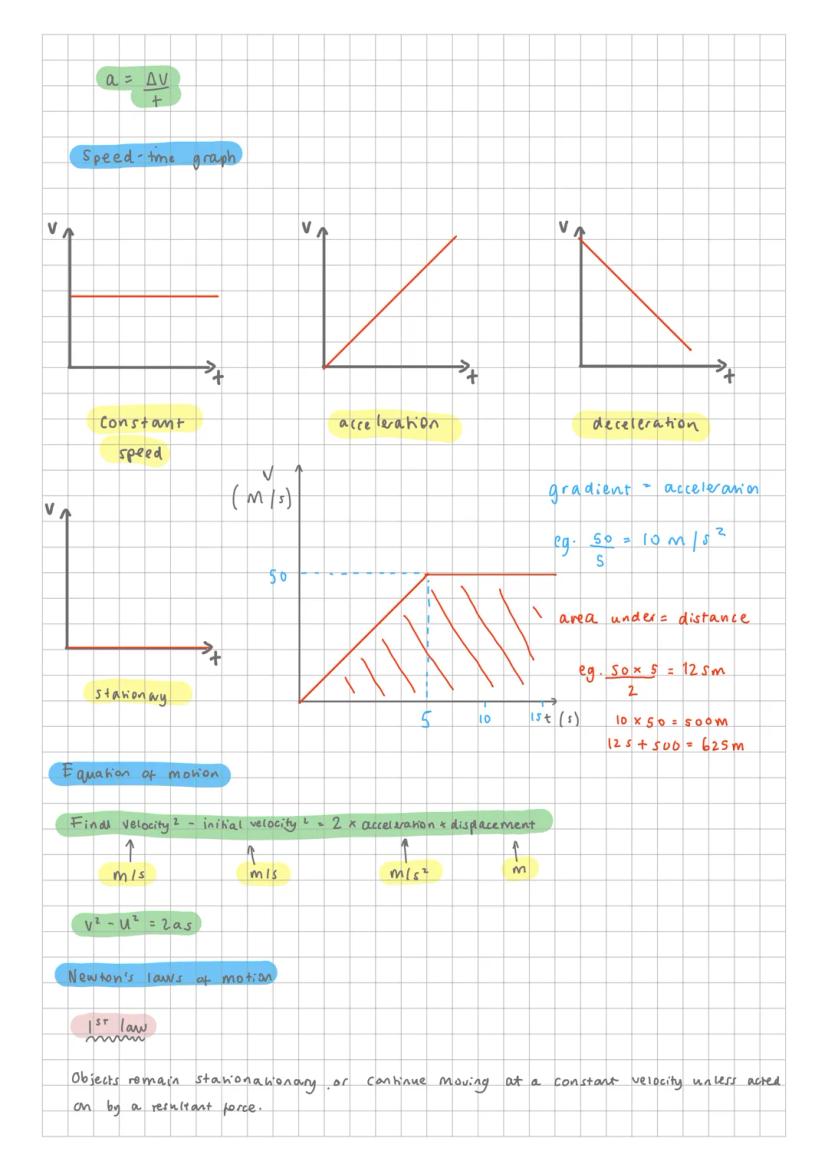 a = ΔV
t
Speed-time graph
V
t
V
t
V
t
Constant
speed
acceleration
deceleration
V
t
stationary
V
(M/s)
50
5
10
15
t (s)
gradient = acceleration
eg. 50 = 10 m/s²
5
area under = distance
eg. 50 × 5 = 125m
2
10 × 50 = 500m
125 + 500 = 625m
Equation of motion
Final velocity² - initial velocity² = 2 × acceleration × displacement
m/s
m/s
m/s²
m
v² - u² = 2as
Newton's laws of motion
1st law
Objects remain stationationary or continue moving at a constant velocity unless acted
on by a resultant force.